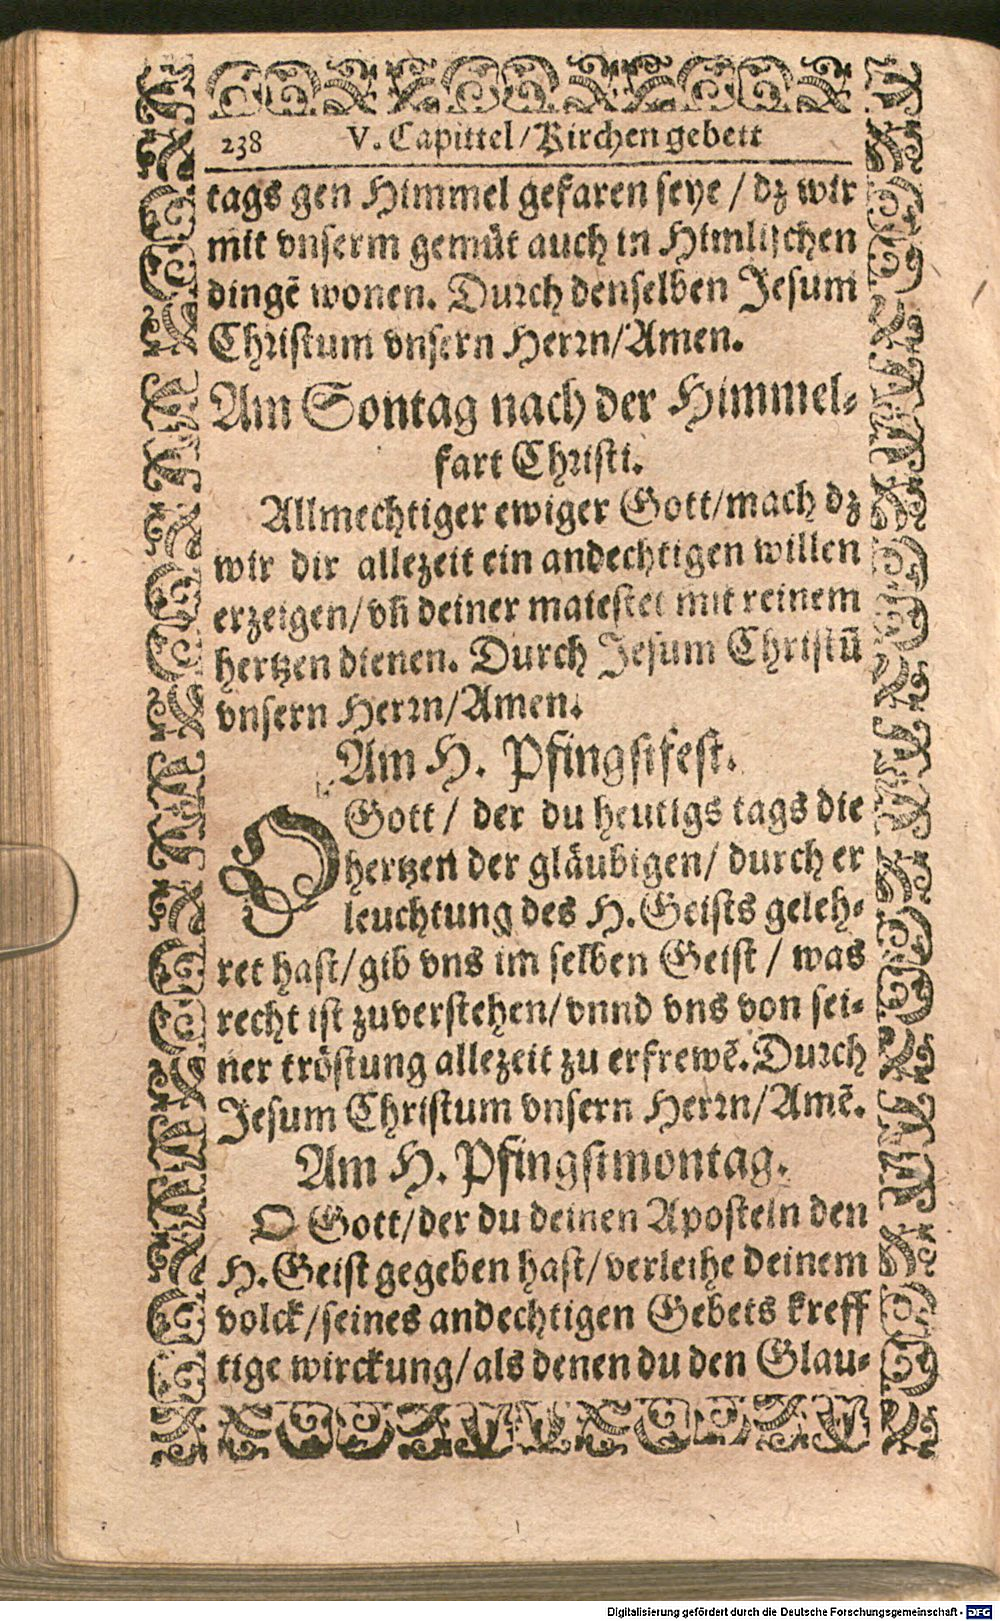 238 V. Capittel/Kirchen gebett
tags gen Himmel gefaren seye / dz wir
mit vnserm gemüt auch in Himlischen
dingē wonen. Durch denselben Jesum
Christum vnsern Herrn/Amen.
Am Sontag nach der Himmel-
fart Christi.
Allmechtiger ewiger Gott/mach dz
wir dir allezeit ein andechtigen willen
erzeigen/ vn̄ deiner maiestet mit reinem
hertzen dienen. Durch Jesum Christū
vnsern Herrn/Amen.
Am H. Pfingstfest.
O Gott/ der du heutigs tags die
hertzen der gläubigen/ durch er
leuchtung des H. Geists geleh-
ret hast/gib vns im selben Geist / was
recht ist zuverstehen/ vnnd vns von sei-
ner tröstung allezeit zu erfrewē. Durch
Jesum Christum vnsern Herrn/Amē.
Am H. Pfingstmontag.
O Gott/der du deinen Aposteln den
H. Geist gegeben hast/ verleihe deinem
volck/seines andechtigen Gebets kreff
tige wirckung/als denen du den Glau-
Digitalisierung gefördert durch die Deutsche Forschungsgemeinschaft - DFG